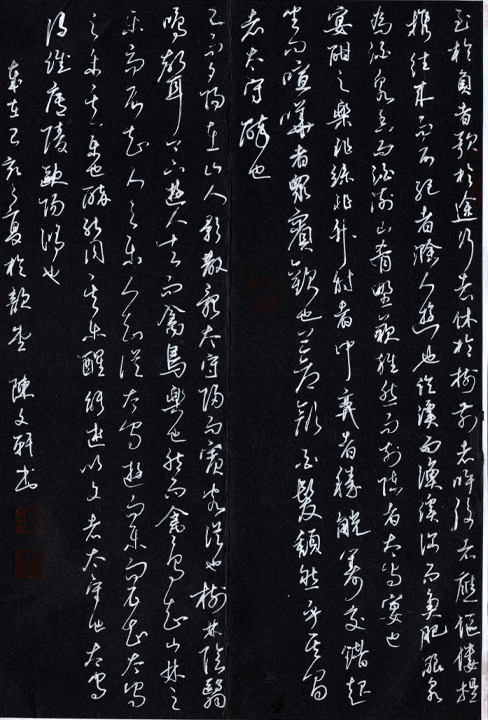 至於負者歌於途行者休於樹前者呼後者應傴僂提
攜往來而不絕者滁人遊也臨溪而漁溪深而魚肥釀泉
為酒泉香而酒洌山肴野蔌雜然而前陳者太守宴也
宴酣之樂非絲非竹射者中弈者勝觥籌交錯起
坐而喧嘩者眾賓歡也蒼顏白髮頹然乎其間
者太守醉也
已而夕陽在山人影散亂太守歸而賓客從也樹林陰翳
鳴聲上下遊人去而禽鳥樂也然而禽鳥知山林之
樂而不知人之樂人知從太守遊而樂而不知太守
之樂其樂也醉能同其樂醒能述以文者太守也太守
謂誰廬陵歐陽修也
歲在乙亥之夏於 陳文軒書